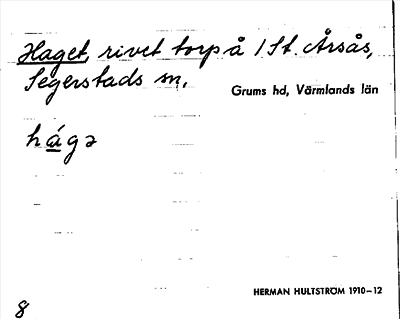 Haget, rivet torp å 1 St. Årsås,
Segerstads sn,
Grums hd, Värmlands län
hágə
HERMAN HULTSTRÖM 1910–12
8